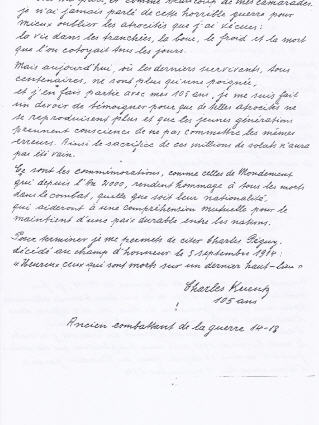 et comme beaucoup de mes camarades
je n'ai jamais parlé de cette horrible guerre pour
mieux oublier les atrocités que j'ai vécues;
la vie dans les tranchées, la boue, le froid et la mort
que l'on cotoyait tous les jours.
Mais aujourd'hui, où les derniers survivants, tous
centenaires, ne sont plus qu'une poignée,
et j'en fais partie avec mes 105 ans, je me suis fait
un devoir de témoigner pour que de telles atrocités ne
se reproduisent plus et que les jeunes générations
prennent conscience de ne pas commettre les mêmes
erreurs. Ainsi le sacrifice de ces millions de soldats n'aura
pas été vain.
Ce sont les commémorations, comme celles de Mondement
qui depuis l'An 2000, rendent hommage à tous les morts
dans le combat, quelle que soit leur nationalité,
qui aideront à une compréhension mutuelle pour le
maintient d'une paix durable entre les nations.
Pour terminer je me permets de citer Charles Péguy,
décédé au champ d'honneur le 5 septembre 1914:
"Heureux ceux qui sont morts sur un dernier haut-lieu"
Charles Kuentz
105 ans
Ancien combattant de la guerre 14-18